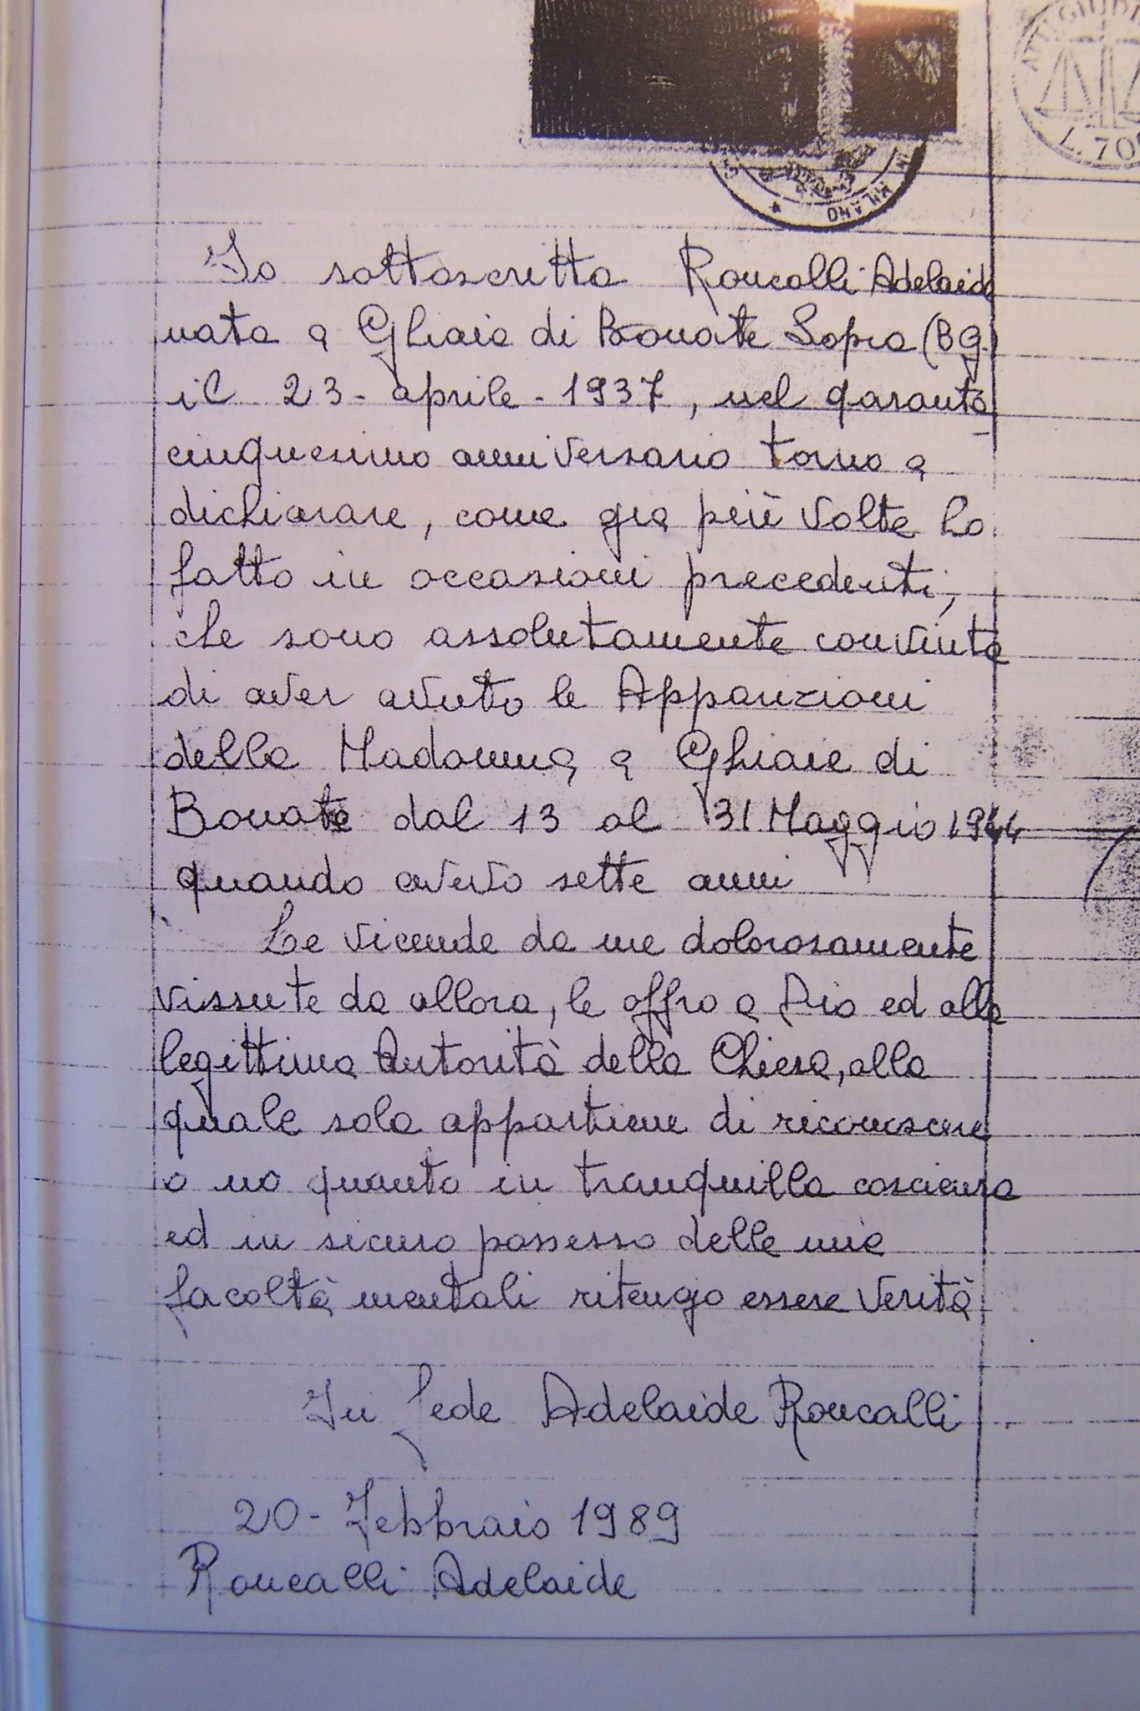 ATTI GIUDI
L. 700
MILANO
Io sottoscritta Roncalli Adelaide
nata a Ghiaie di Bonate Sopra (BG.)
il 23 - aprile - 1937, nel quaranta
cinquesimo anniversario torno a
dichiarare, come già più volte ho
fatto in occasioni precedenti,
che sono assolutamente convinta
di aver avuto le Apparizioni
della Madonna a Ghiaie di
Bonate dal 13 al 31 Maggio 1944
quando avevo sette anni
Le vicende da me dolorosamente
vissute da allora, le offro a Dio ed alla
legittima Autorità della Chiesa, alla
quale sola appartiene di riconoscere
o no quanto in tranquilla coscienza
ed in sicuro possesso delle mie
facoltà mentali ritengo essere verità.
In fede Adelaide Roncalli
20 - Febbraio 1989
Roncalli Adelaide